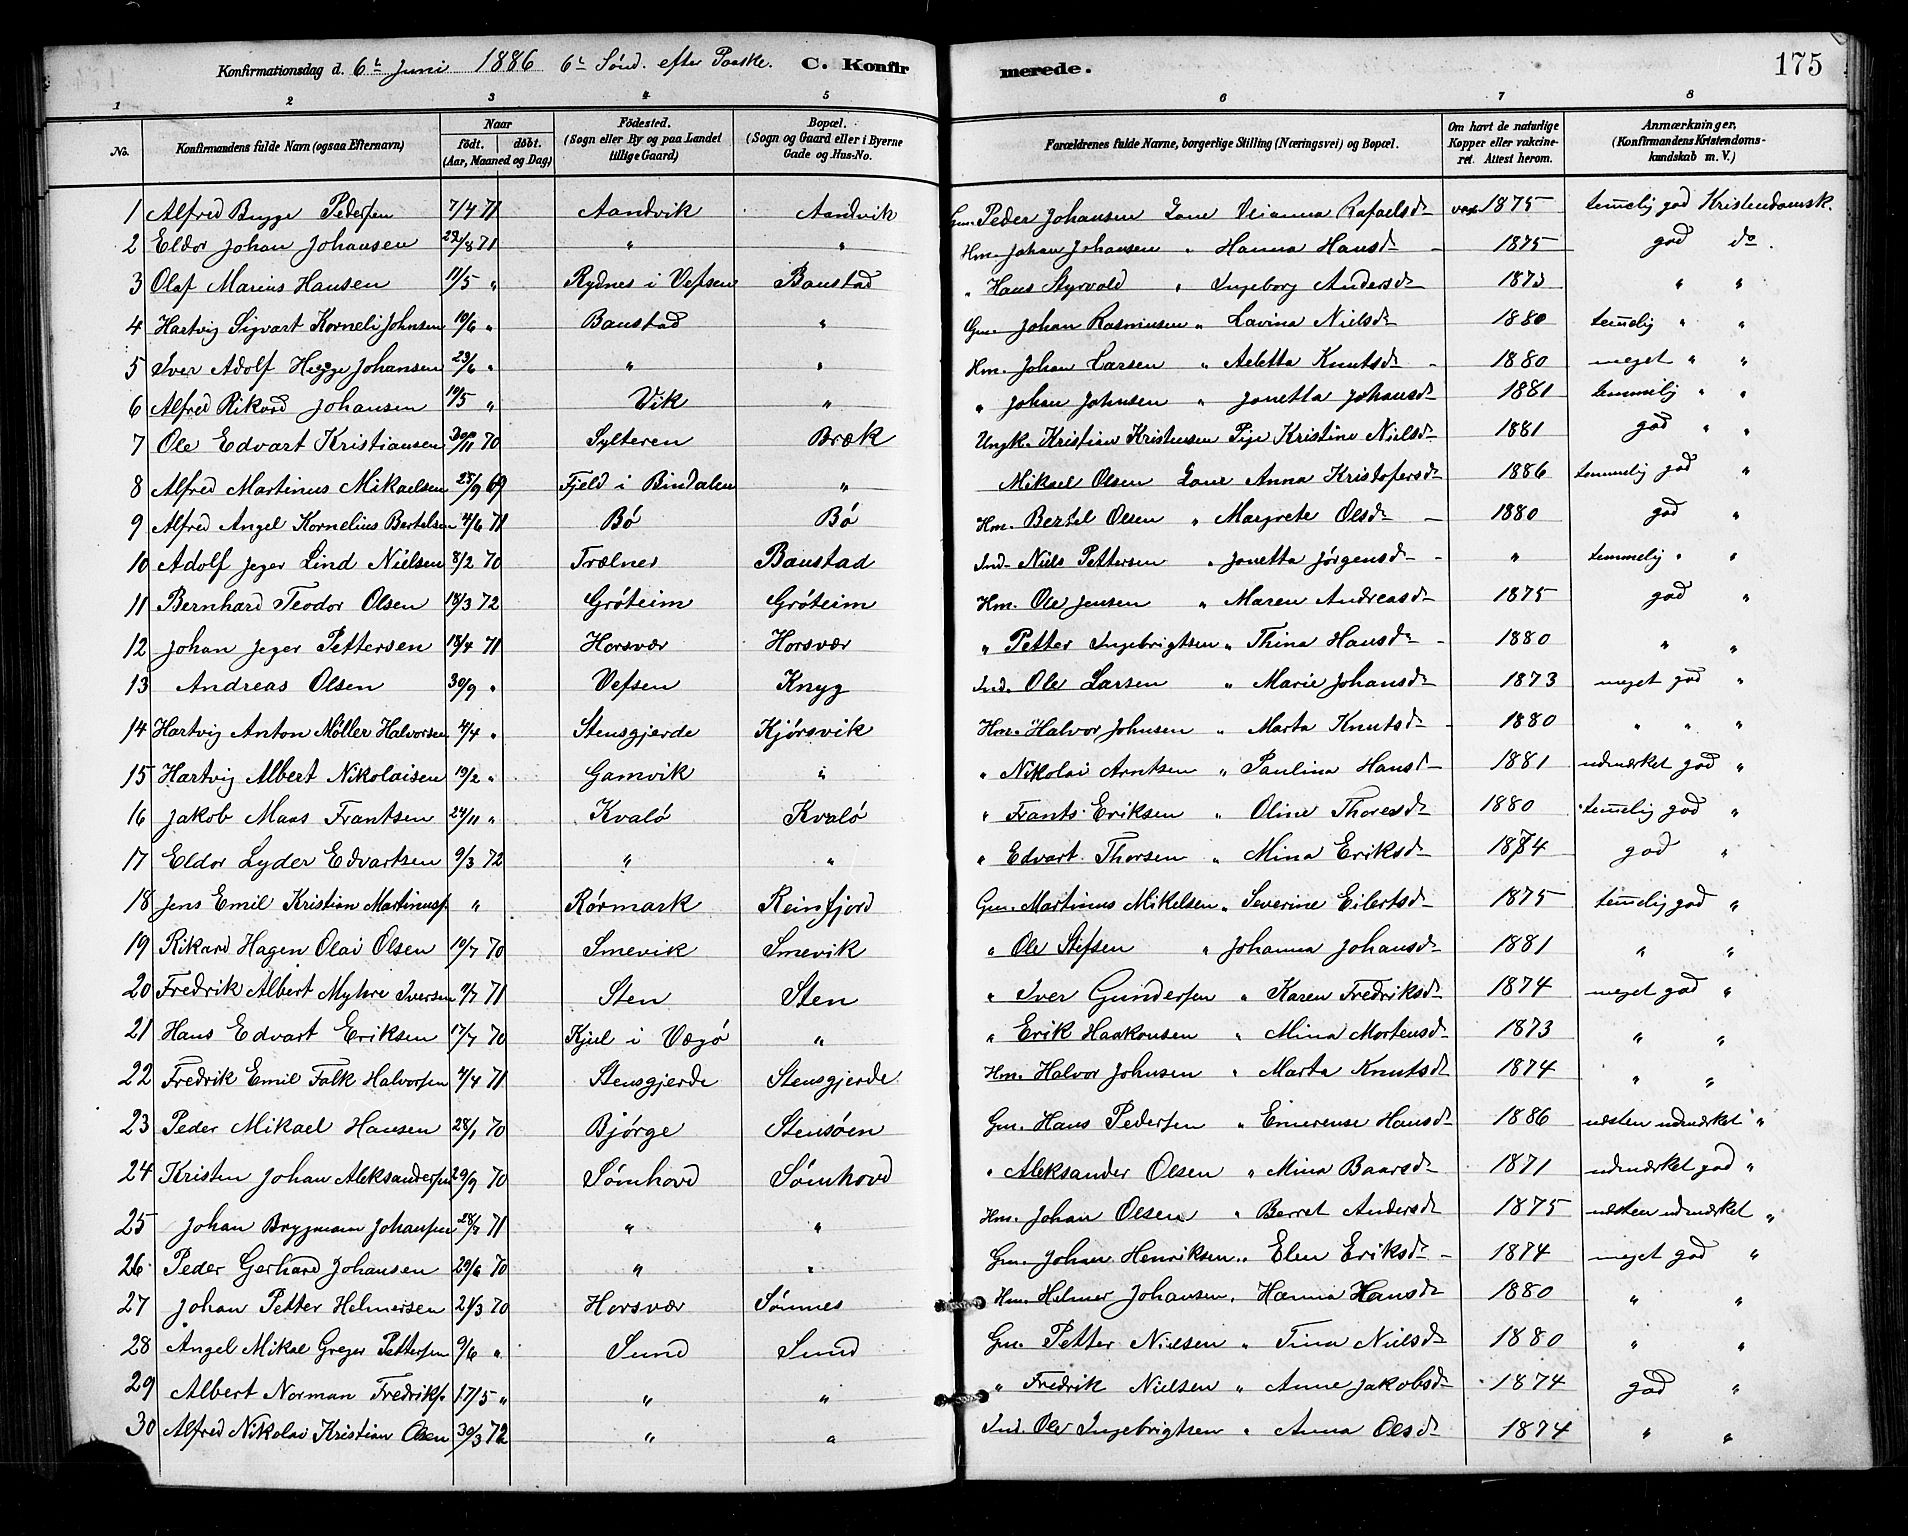 175
Konfirmationsdag d. 6te Juni 1886 6te Sönd. efter Paaske. C. Konfir merede.
1 2 3 4 5 6 7 8
No. Konfirmandens fulde Navn (ogsaa Efternavn) Naar födt. döbt. (Aar, Maaned og Dag) Födested. (Sogn eller By og paa Landet tillige Gaard) Bopæl. (Sogn og Gaard eller i Byerne Gade og Hus-No. Forældrenes fulde Navne, borgerlige Stilling (Næringsvei) og Bopæl. Om havt de naturlige Kopper eller vakcineret. Attest herom. Anmærkninger. (Konfirmandens Kristendomskundskab m. V.)
1 Alfred Bugge Pedersen 7/4 71 Aandvik Aandvik Gm. Peder Johansen Kone Rafaelsd. vax 1875 temelig god Kristendomsk.
2 Eldor Johan Johansen 22/8 71 " " Hm. Johan Johansen " Hanna Hansd. 1875 god do.
3 Olaf Marius Hansen 11/5 " Rydnes i Vefsen Baustad " Hans Styrvold " Ingeborg Andersd. 1873 " "
4 Hartvig Sigvart Korneli Johnsen 10/6 " Baustad " Gm. Johan Rasmusen " Lavina Nielsd. 1880 temelig " "
5 Iver Adolf Hegge Johansen 23/6 " " " Hm. Johan Larsen " Aletta Knutsd. 1880 meget " "
6 Alfred Rikard Johansen 10/5 " Vik " " Johan Johnsen " Jonetta Johansd. 1881 temmelig " "
7 Ole Edvart Kristiansen 30/11 70 Sylteren Bræk Ungk. Kristian Kristensen Pige Kristine Nielsd. 1881 god " "
8 Alfred Martinus Mikaelsen 25/9 69 Fjeld i Bindalen " Mikael Olsen Kone Anna Kristofersd. 1886 temmelig god "
9 Alfred Angel Kornelius Bertelsen 4/6 71 Bö Bö Hm. Bertel Olsen " Margrete Olsd. 1880 god "
10 Adolf Jeger Lind Nielsen 8/2 70 Trælnes Baustad Ind. Niels Pettersen " Jonetta Jørgensd. " temmelig " "
11 Bernhard Teodor Olsen 18/3 72 Gröteim Gröteim Hm. Ole Jensen " Maren Andreasd. 1875 god "
12 Johan Jeger Pettersen 18/4 71 Horsvær Horsvær " Petter Ingebrigtsen " Thina Hansd. 1880 " "
13 Andreas Olsen 30/9 " Vefsen Knyg Ind. Ole Larsen " Marie Johansd. 1873 meget god "
14 Hartvig Anton Möller Halvorsen 4/4 " Stensgjerde Kjörsvik Hm. Halvor Johnsen " Marta Knutsd. 1880 " " "
15 Hartvig Albert Nikolaisen 19/2 " Gamvik " " Nikolai Arntsen " Paulina Hansd. 1881 udmærket god "
16 Jakob Maas Frantsen 24/11 " Kvalö Kvalö " Frants Eriksen " Oline Thoresd. 1880 temelig god "
17 Eldor Lyder Edvartsen 9/3 72 " " " Edvart Thorsen " Mina Eriksd. 1874 god "
18 Jens Emil Kristian Martinus. " Rörmark Reinfjord Gm. Martinus Mikelsen " Severine Eilertsd. 1875 temelig god "
19 Rikard Hagen Olai Olsen 19/7 70 Smevik Smevik " Ole Stefsen " Johanna Johansd. 1881 " "
20 Fredrik Albert Myhre Iversen 9/7 71 Sten Sten " Iver Gundersen " Karen Fredriksd. 1874 meget god "
21 Hans Edvart Eriksen 17/7 70 Kjul i Vægö " " Erik Haakonsen " Mina Mortensd. 1873 " "
22 Fredrik Emil Falk Halvorsen 4/4 71 Stensgjerde Stensgjerde Hm. Halvor Johnsen " Marta Knutsd. 1874 " "
23 Peder Mikael Hansen 28/1 70 Björge Stensöen Gm. Hans Pedersen " Emerense Hansd. 1886 næsten udmærket "
24 Kristen Johan Aleksandersen 29/9 70 Sömhovd Sömhovd " Aleksander Olsen " Mina Baarsd. 1871 udmærket god "
25 Johan Brygmann Johansen 28/7 71 " " Hm. Johan Olsen " Berret Andersd. 1875 næsten udmærket "
26 Peder Gerhard Johansen 29/6 70 " " Gm. Johan Henriksen " Elen Eriksd. 1874 meget god "
27 Johan Petter Helmersen 21/3 70 Horsvær Sömnes Hm. Helmer Johansen " Hanna Hansd. 1880 " "
28 Angel Mikal Greger Pettersen 9/6 " Sund Sund Gm. Petter Nielsen " Tina Nielsd. 1880 " "
29 Albert Norman Fredriks. 17/5 " " " " Fredrik Nielsen " Anne Jakobsd. 1874 god "
30 Alfred Nikolai Kristian Olsen 30/3 72 " " Ind. Ole Ingebrigtsen " Anna Olsd. 1874 " "